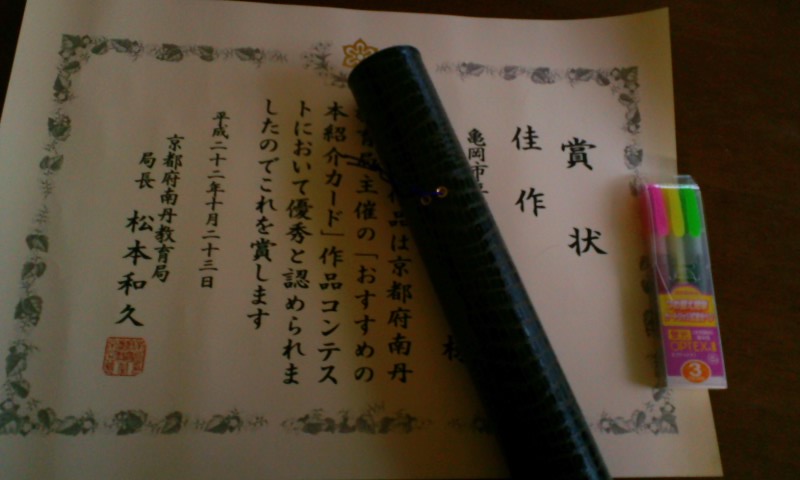 賞状
佳作
亀岡市
様
作品は京都府南丹
教育局主催の「おすすめの
本紹介カード」作品コンテス
トにおいて優秀と認められま
したのでこれを賞します
平成二十二年十月二十三日
京都府南丹教育局
局長 松本和久
3